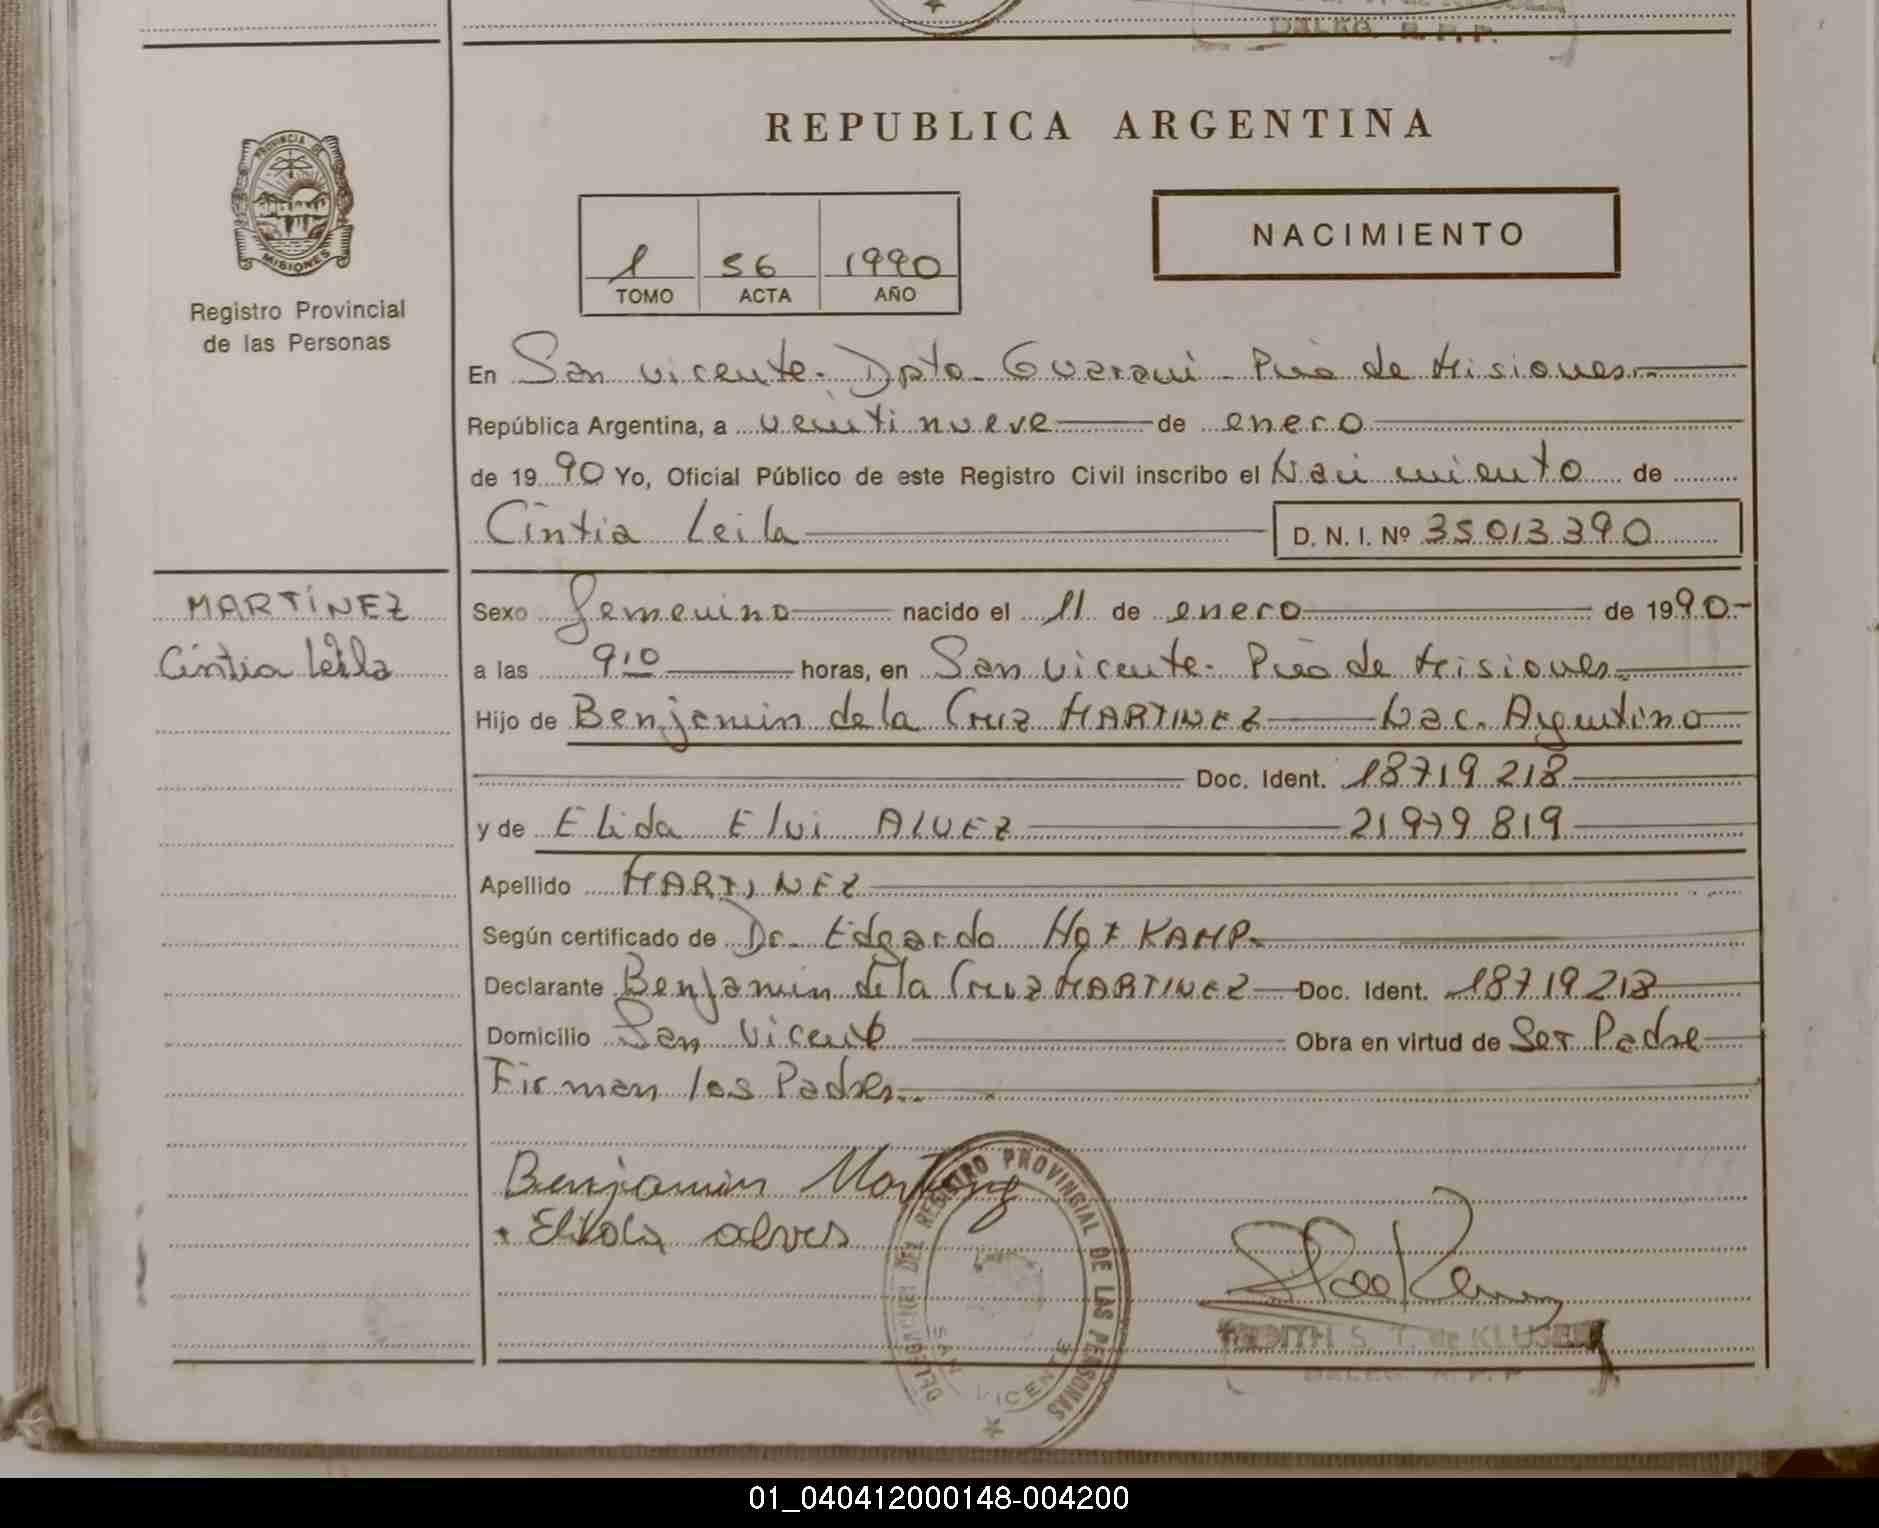 DELEG. R. P. P.
REPUBLICA ARGENTINA
PROVINCIA DE
MISIONES
Registro Provincial
de las Personas
1 56 1990
TOMO ACTA AÑO
NACIMIENTO
En San Vicente - Dpto. Guarani - Pcia de Misiones.-
República Argentina, a veinti nueve de enero
de 1990 Yo, Oficial Público de este Registro Civil inscribo el Nacimiento de
Cintia Leila D. N. I. Nº 35013390
MARTÍNEZ
Cintia Leila
Sexo femenino nacido el 11 de enero de 1990.-
a las 9,10 horas, en San Vicente - Pcia de Misiones.
Hijo de Benjamin de la Cruz MARTINEZ Nac. Argentino
Doc. Ident. 18719218
y de Elida Elvi ALVEZ 21979819
Apellido MARTINEZ
Según certificado de Dr. Edgardo KAMP.
Declarante Benjamin de la Cruz MARTINEZ Doc. Ident. 18719218
Domicilio San Vicente Obra en virtud de Ser Padre
Firman los Padres.
Benjamin Martinez
Elida alves
DELEGACION DEL REGISTRO PROVINCIAL DE LAS PERSONAS
SAN VICENTE
EDITH S. T. de KLUSER
DELEG. R. P. P.
01_040412000148-004200